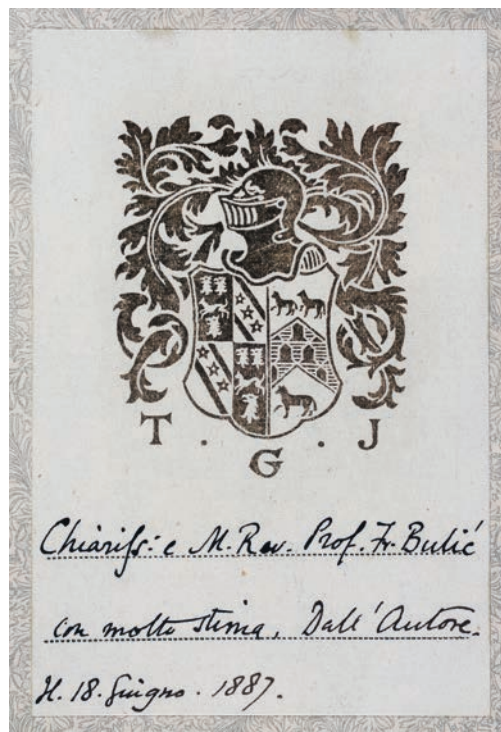 T . G . J
Chiariss: e M. Rev. Prof. Fr. Bulić
con molta stima, Dall' Autore.
Il. 18. Giugno. 1887.